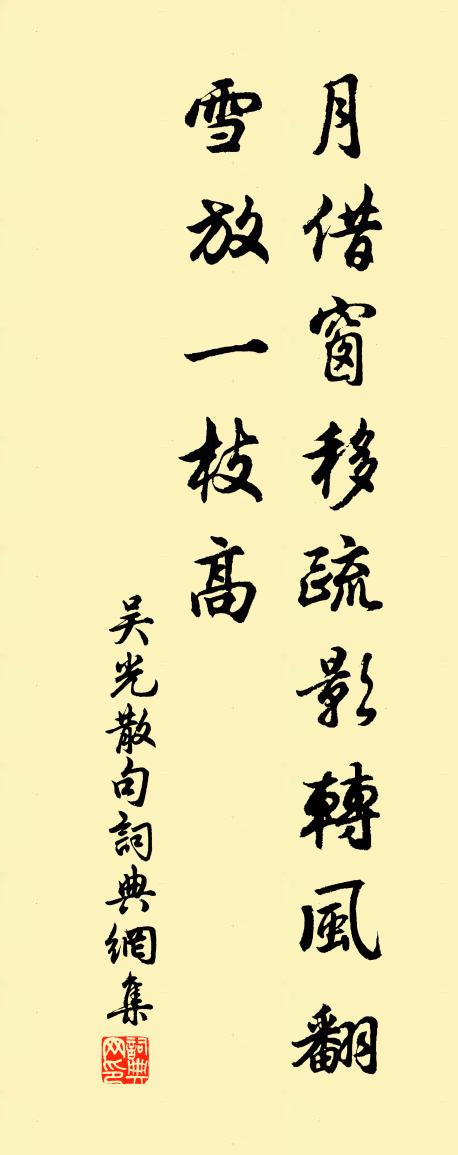 月借窗移疏影轉風翻
雪放一枝高
吳光散句詞典網集
詞典网印